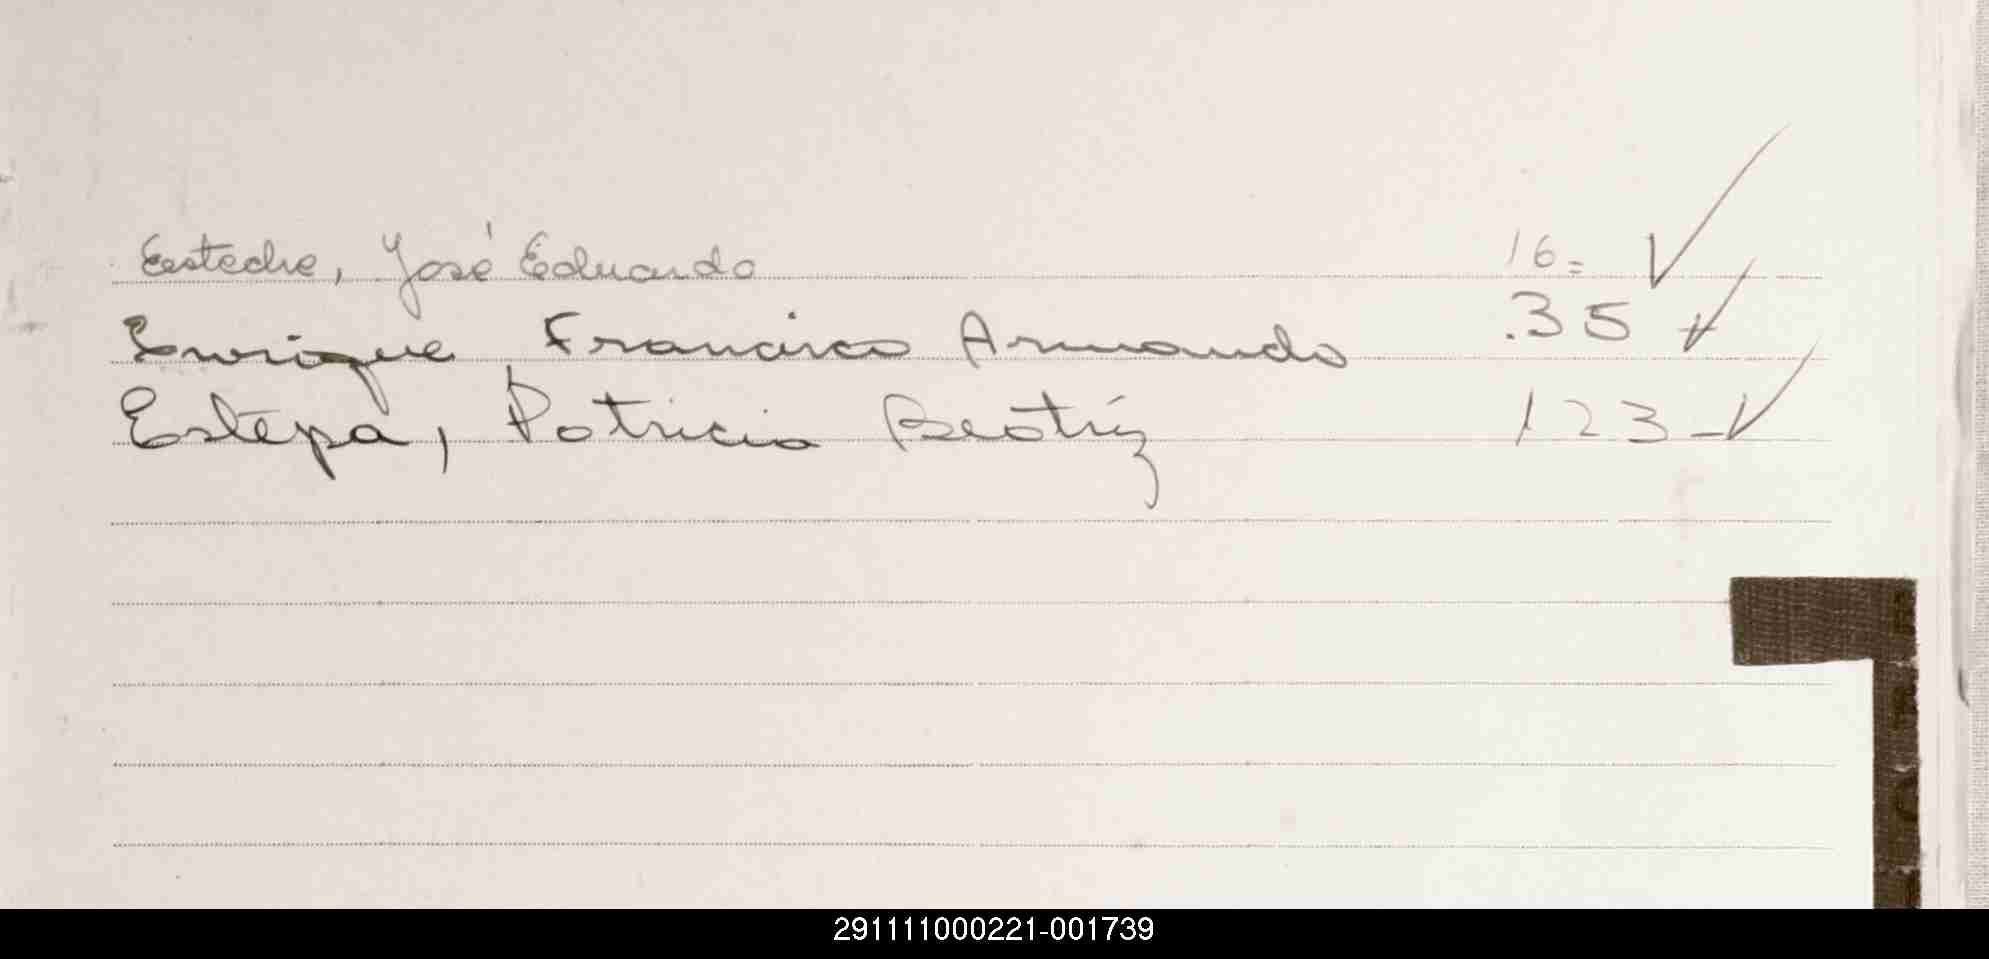 Esteche, José Eduardo 16= ✓
Enrique Francisco Armando .35 ✓
Estepa, Patricia Beatríz 123-✓
291111000221-001739